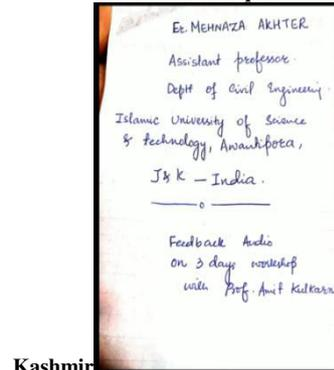 Er. MEHNAZA AKHTER
Assistant professor.
Deptt of Civil Engineering.
Islamic University of Science
& technology, Awantipora,
J&K – India.
Feedback Audio
on 3 days workshop
with Prof. Amit Kulkarn
Kashmir